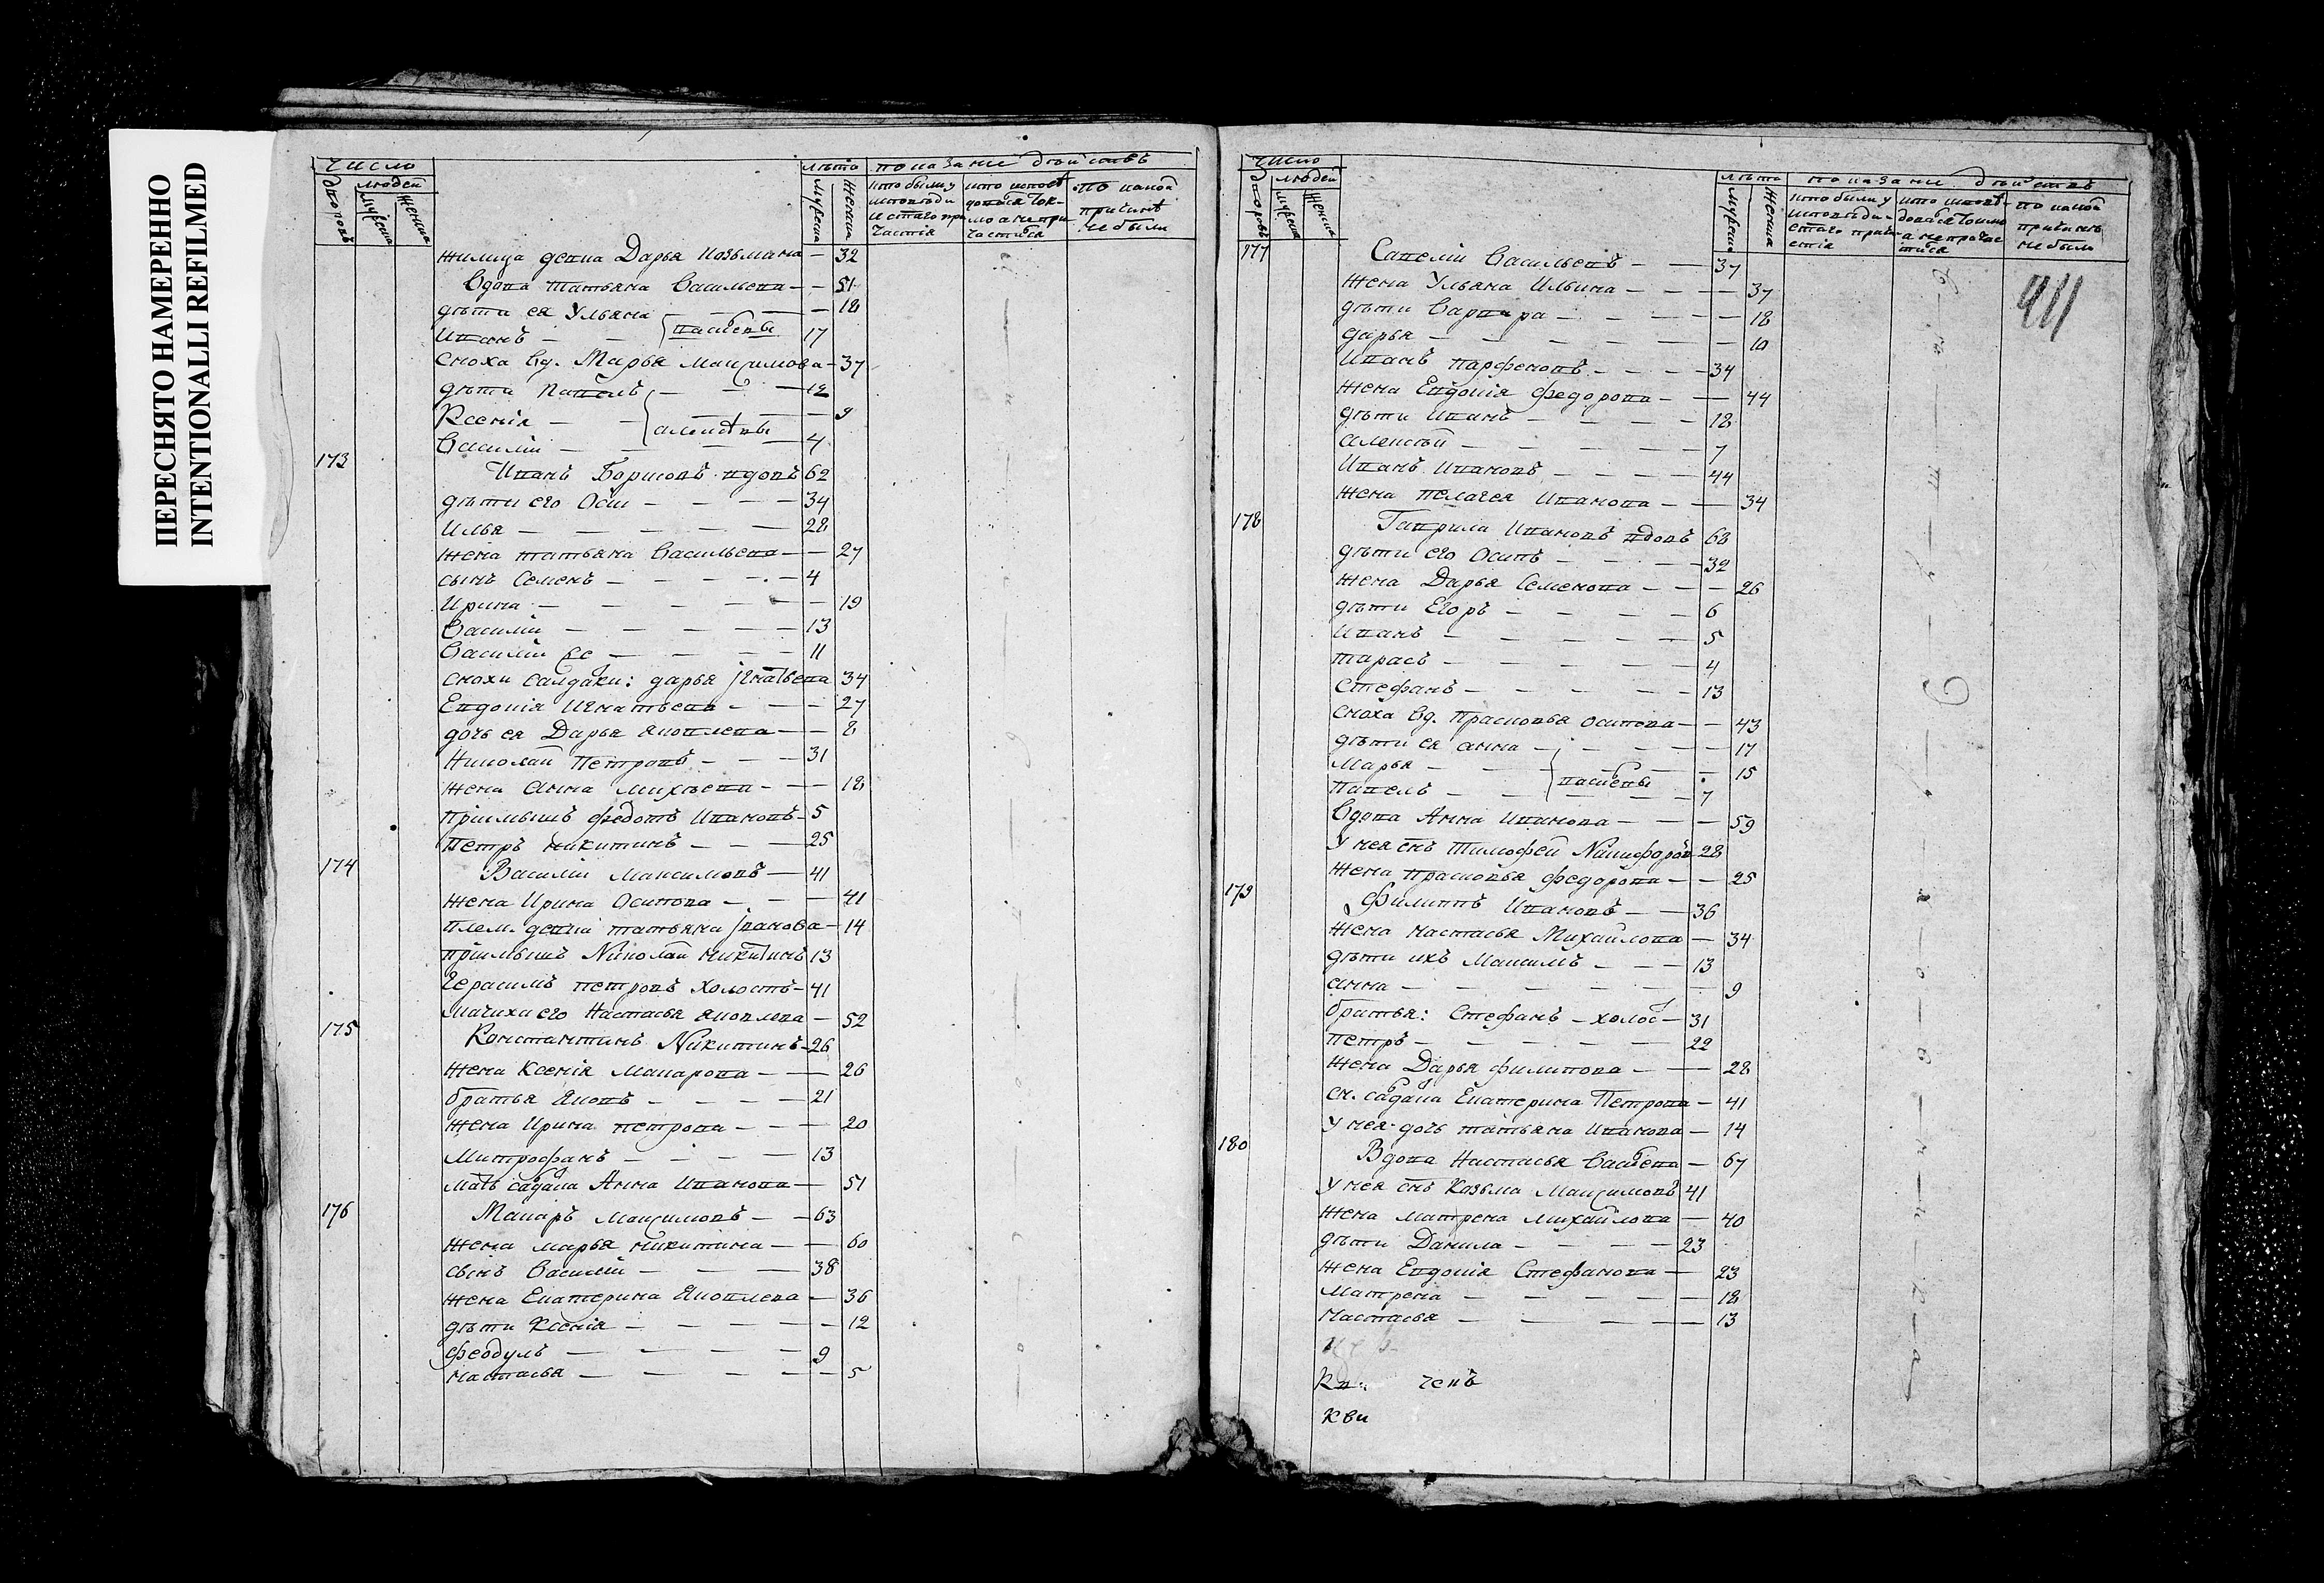 ПЕРЕСНЯТО НАМЕРЕННО
INTENTIONALLI REFILMED
число
дворовъ
людей
мужеска
женска
лѣта
мужеска
женска
показание дѣйствъ
кто были у исповѣди и стаго причастія
кто исповѣдовался токмо а не причастився
по какой причинѣ не были
жилица девка Дарья Козьмина — 32
Вдова татьяна Васильева — 51
дѣти ея Ульяна — 18
Иванъ — 17
пасиевы
сноха вд. Марья Максимова — 37
дѣти Павелъ — 12
Ксенія — 9
Василій — 4
алексѣевы
173 Иванъ Борисовъ вдовъ 62
дѣти его Осип — 34
Илья — 28
жена татьяна Васильева — 27
сынъ Семенъ — 4
Ирина — 19
Василій — 13
Василій же — 11
снохи салдатки: дарья Игнатьева 34
Евдокія Игнатьева — 27
дочь ея Дарья яковлева — 8
Николай Петровъ — 31
жена Анна михѣева — 18
пріимышъ федотъ Ивановъ — 5
Петръ никитинъ — 25
174 Василій Максимовъ — 41
жена Ирина Осипова — 41
плем. девка татьяна Іванова — 14
пріимышъ Николай никитинъ 13
Герасимъ петровъ холостъ — 41
Мачиха его Настасья яковлева — 52
175 Константинъ Никитинъ — 26
жена Ксенія Макарова — 26
братья Яковъ — 21
жена Ирина петрова — 20
Митрофанъ — 13
мать салдатка Анна Иванова — 51
176 Макаръ Максимовъ — 63
жена марья никитина — 60
сынъ Василій — 38
жена Екатерина Яковлева — 36
дѣти Ксенія — 12
феодулъ — 9
настасья — 5
число
дворовъ
людей
мужеска
женска
лѣта
мужеска
женска
показание дѣйствъ
кто были у исповѣди стаго причастія
кто исповѣдовался токмо а не причастися
по какой причинѣ не были
911
177 Савелій Васильевъ — 37
жена Ульяна Ильина — 37
дѣти Варвара — 18
дарья — 10
Иванъ парфеновъ — 34
жена Евдокія федорова — 44
дѣти Иванъ — 18
алексѣй — 7
Иванъ Ивановъ — 44
жена пелагея Иванова — 34
178 Гаврила Ивановъ вдовъ 68
дѣти его Осипъ — 32
жена Дарья Семенова — 26
дѣти Егоръ — 6
Иванъ — 5
тарасъ — 4
Стефанъ — 13
сноха вд. Прасковья осипова — 43
дѣти ея анна — 17
Марья — 15
павелъ — 7
васильевы
Вдова Анна Иванова — 59
у нея снъ тимофей Никифоровъ 28
жена прасковья федорова — 25
179 Филиппъ Ивановъ — 36
жена настасья Михайлова — 34
дѣти ихъ Максимъ — 13
анна — 9
братья: Стефанъ — холос — 31
петръ — 22
жена Дарья филипова — 28
сн. салдатка Екатерина Петрова — 41
у нея дочь татьяна Иванова — 14
180 Вдова Настасья Васильева — 67
у нея снъ Козьма Максимовъ 41
жена матрена михайлова — 40
дѣти Данила — 23
жена Евдокія Стефанова — 23
Матрена — 18
настасья — 13
Кв: чевъ
кви